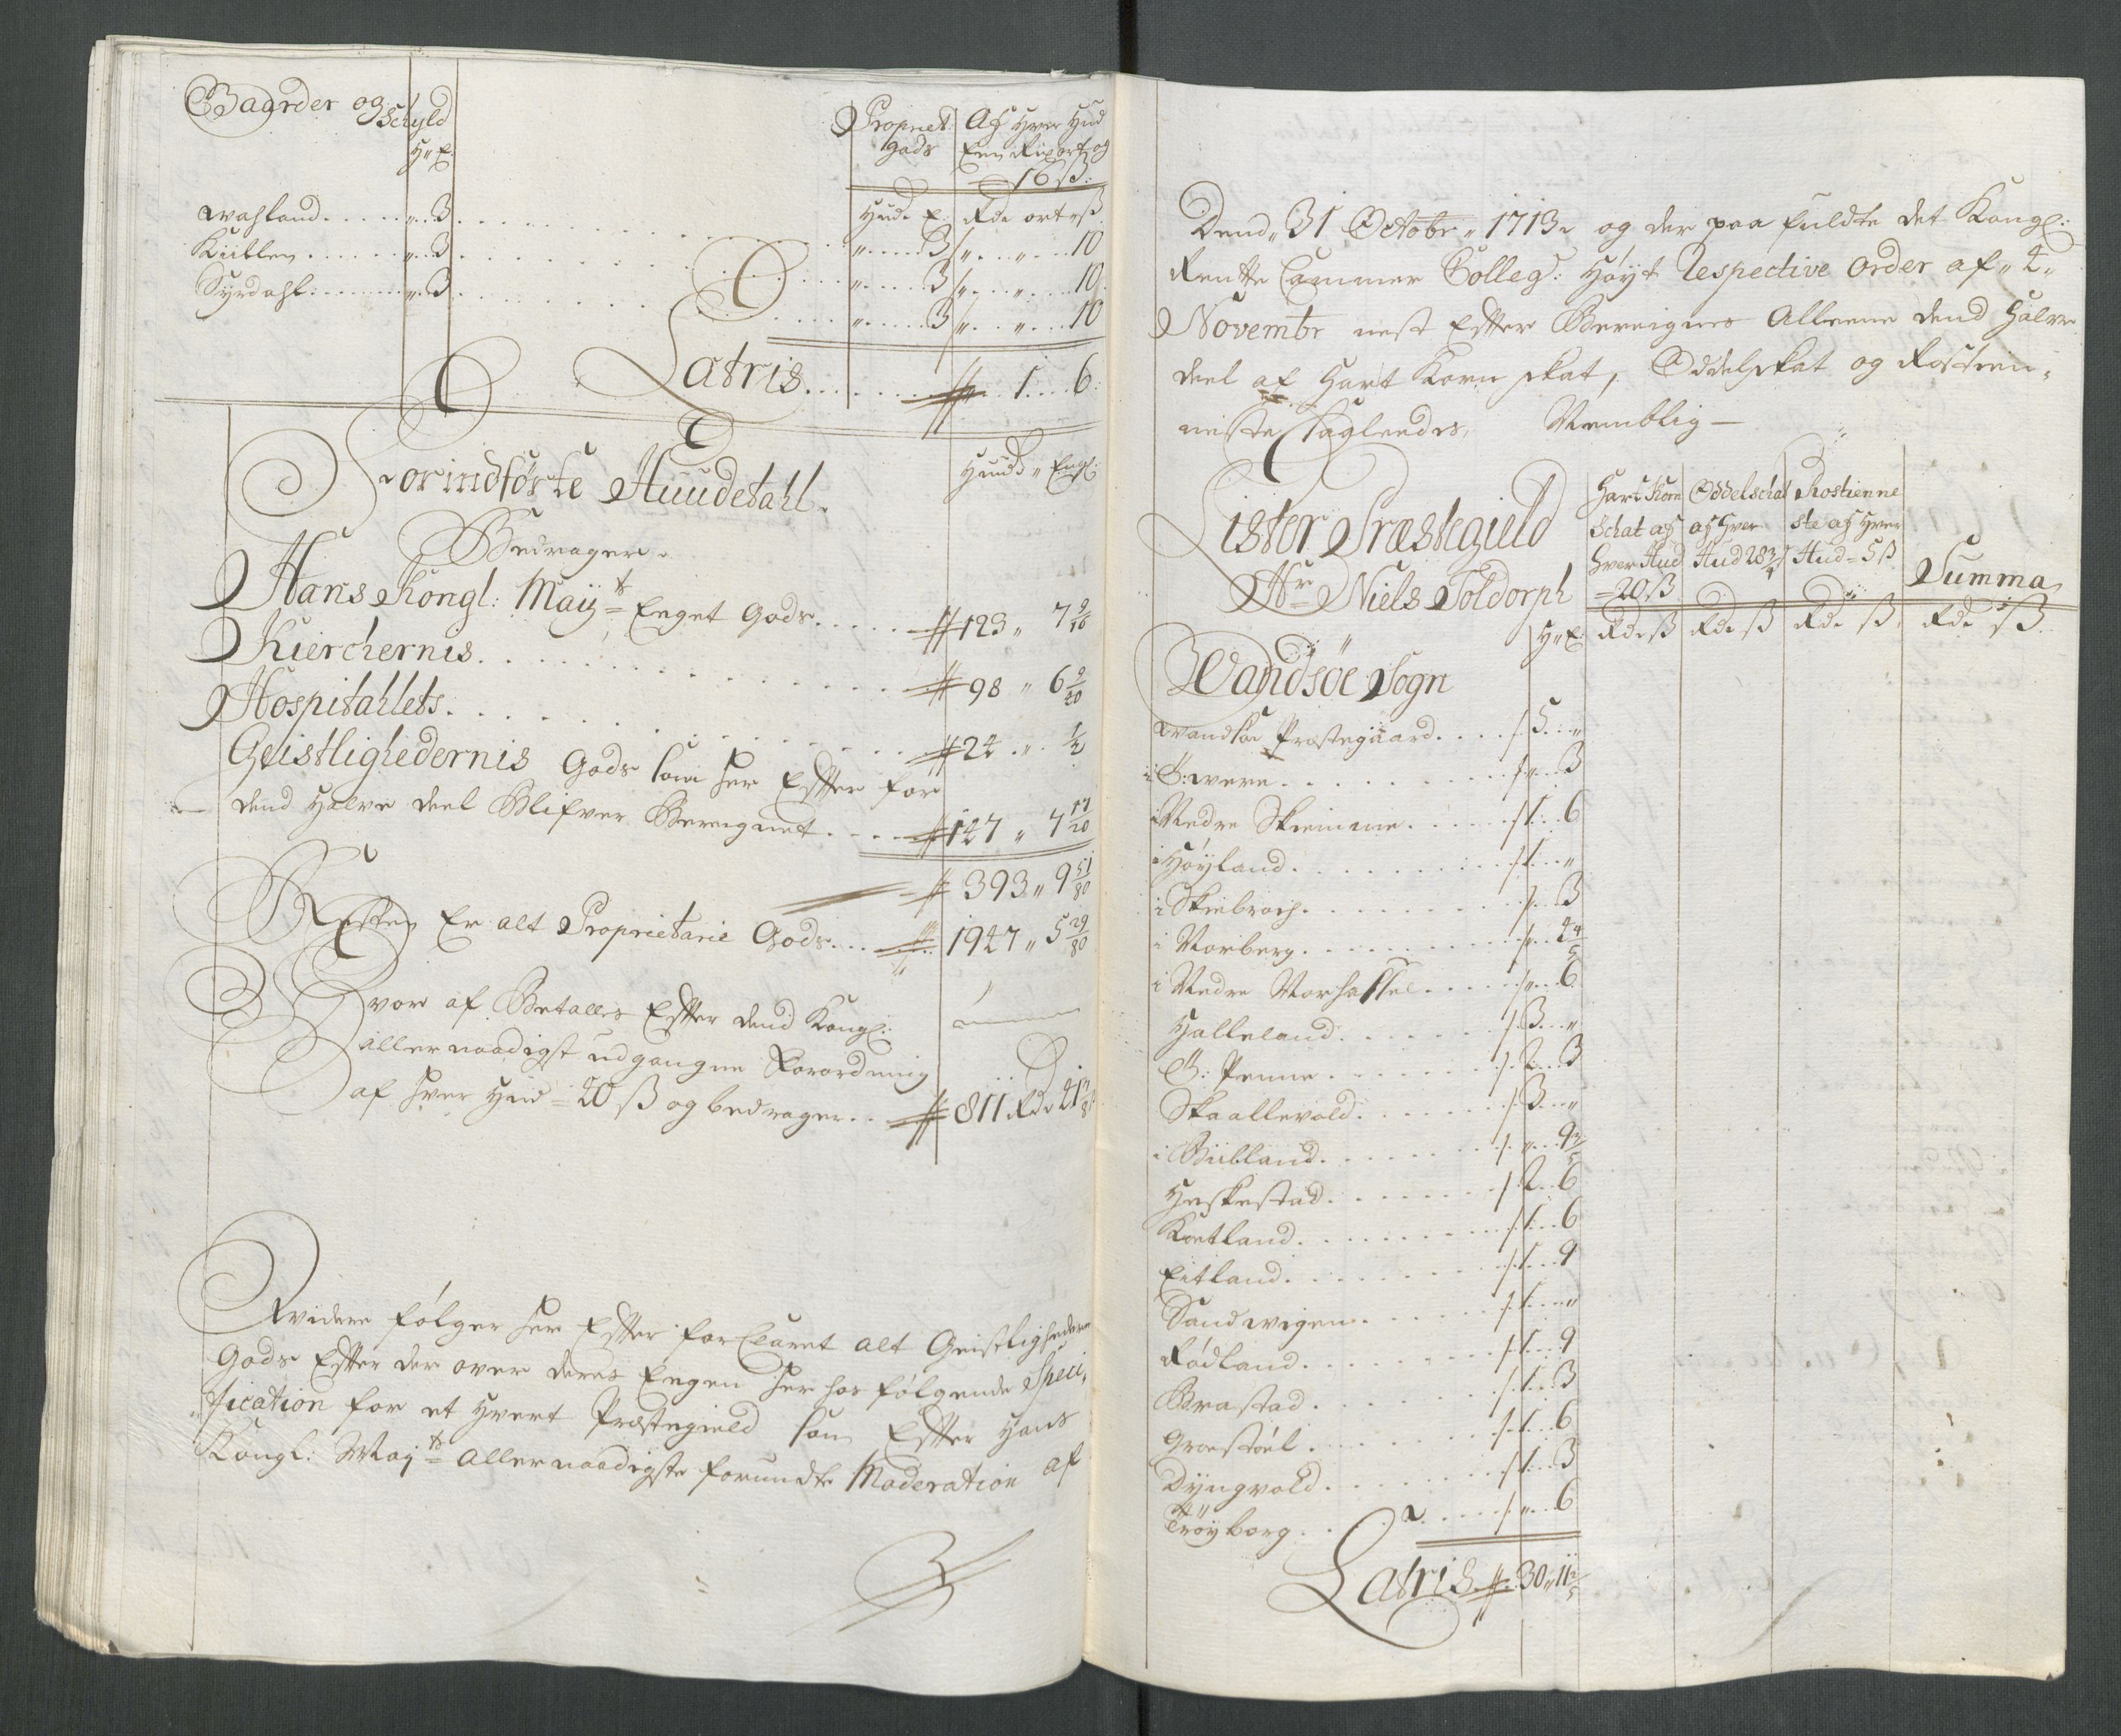 Gaarder og Schyld
H: E:
Propriet: Gods
Af Hver Hud
Een Rixort og
16 ß:
Hud: E: Rd: ort ß
Wahland . . . . „ . . 3 . . . „ . . . 3 „ . . „ . . 10
Kublen . . . . „ . . 3 . . . „ . . . 3 „ . . „ . . 10
Syrdahl . . . . „ . . 3 . . . „ . . . 3 „ . . „ . . 10
Latris . . . . . 1 . . 6:
Forindførte Huudetahl
Huud „ Engl:
Bedrager
Hans Kongl: Mayts Eeget Gods . . . . 123 „ 7 9/16
Kierchernis . . . . 98 „ 6 9/20
Hospitahlets . . . . 24 „ 1/2
Geistlighedernis Gods som her Effter for
dend Halve deel Blifver Bereignet . . . . 147 „ 7 17/20
393 „ 9 51/80
Resten Er alt Proprietarie Gods . . . 1947 „ 5 29/80
Hvor af Betalles Effter dend Kongl:
allernaadigst udgangne Forordning
af hver Hud = 40 ß og bedrager . . 811 Rdr 41
Widere følger her Effter forClaret alt Geistlighedens
Gods Effter der over deres Eegen her hos følgende Speci¬
fication for et hvert Præstegield som Effter Hans
Kongl: Mayts Allernaadigste forundte Moderation af
Dend „ 31 Octobr „ 1713 og der paa fuldte det Kongl:
Rentte Cammer Colleg: Høyt Respective Order af „ 4 „
Novembr nest Effter Bereignes Alleene dend Halve
deel af Hart Korn skat, Oddelskat og Rosstien¬
neste saaledes, Nemblig —
Lister Præstegield
Hr Niels Toldorph
Hart Korn Schat af Hver Hud = 20 ß
Oddelschat af Hver Hud 28 3/4
Rostienneste af Hver Hud = 5 ß
Summa
H: E: Rdr ß Rdr ß Rdr ß Rdr ß
Wandsøe Sogn
Wandsøe Præstegaard . . . . 5 . . „
i Ø: were . . . . „ . . 3
i Nedre Skrimme . . . . 1 . . 6
i Høyland . . . . 1 . . „
i Skiebroch . . . . „ . . 3
i Norberg . . . . „ . . 4 4/5
i Nedre Norhassel . . . . „ . . 6
Halleland . . . . 3 . . „
Ø: Penne . . . . 2 . . 3
Skaallevold . . . . 3 . . „
i Biibland . . . . „ . . 9 3/5
Heskestad . . . . 2 . . 6
Kortland . . . . 1 . . 6
Eitland . . . . 1 . . 9
Sandwigen . . . . 1 . . „
Rødland . . . . 1 . . 9
Brastad . . . . 1 . . 3
Groestøel . . . . 1 . . 6
Dyngvold . . . . 1 . . 3
Trøyborg . . . . „ . . 6
Latris . . 30 „ 11 2/5